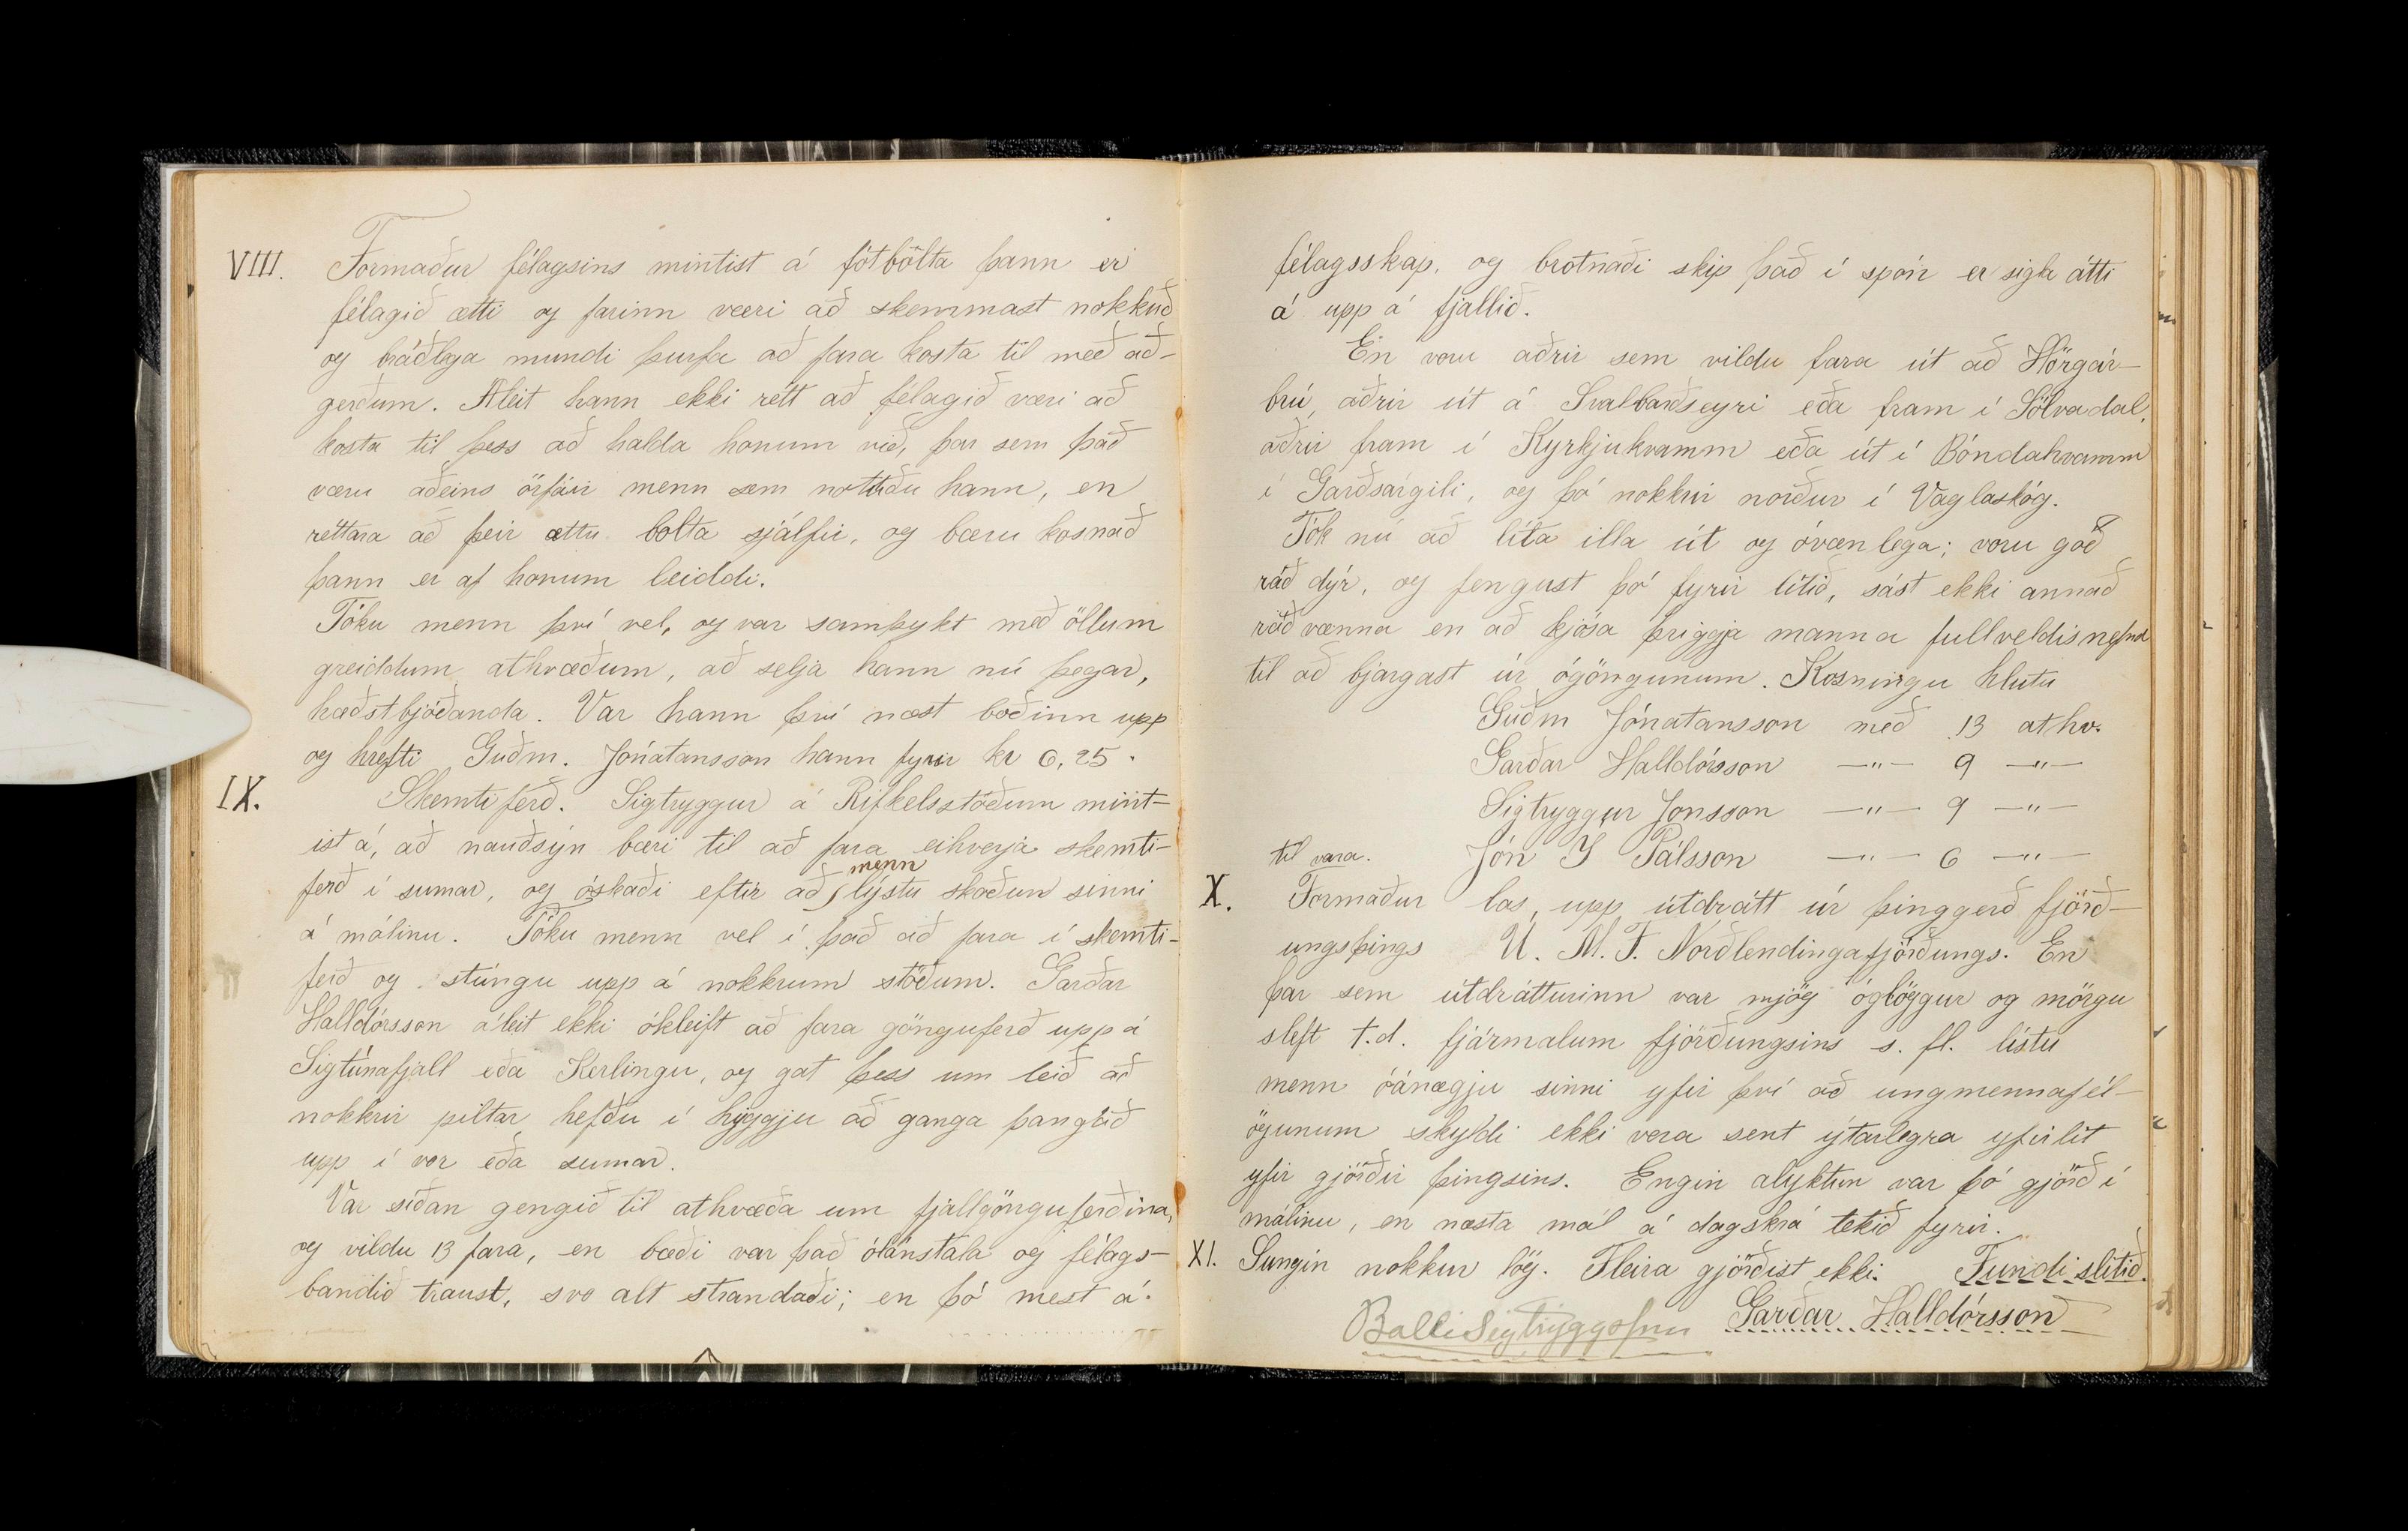 VIII. Formaður félagsins mintist á fótbólta þann er
félagið ætti og farinn væri að skemmast nokkuð
og bráðlega mundi þurfa að fara kosta til með að-
gerðum. Áleit hann ekki rétt að félagið væri að
kosta til þess að halda honum við, þar sem það
væru aðeins örfáir menn sem nottuðu hann, en
réttara að þeir ættu bolta sjálfir, og bæru kosnað
þann er af honum leiddi.
Tóku menn því vel, og var samþykt með öllum
greiddum athvæðum, að selja hann nú þegar,
hæðstbjóðanda. Var hann því næst boðinn upp
og hrefti Guðm. Jónatansson hann fyrir kr 6,25.
IX. Skemtiferð. Sigtryggur á Rifkelsstöðum mint-
ist á, að nauðsýn bæri til að fara eihverja skemti-
ferð í sumar, og óskaði eftir að menn lýstu skoðun sinni
á málinu. Tóku menn vel í það að fara í skemti-
ferð og stungu upp á nokkrum stöðum. Garðar
Halldórsson áleit ekki ókleift að fara gönguferð upp á
Sigtúnafjall eða Kerlingu, og gat þess um leið að
nokkrir piltar hefðu í hyggju að ganga þangað
upp í vor eða sumar.
Var síðan gengið til athvæða um fjallgönguferðina,
og vildu 13 fara, en bæði var það ólánstala og félags-
bandið traust, svo alt strandaði; en þó mest á
félagsskap, og brotnaði skip það í spón er sigla átti
á upp á fjallið.
En voru aðrir sem vildu fara út að Hörgár-
brú, aðrir út á Svalbarðseyri eða fram í Sölvadal,
aðrir fram í Kyrkjukvamm eða út í Bóndahvamm
í Garðsárgili, og þó nokkrir norður í Vaglaskóg.
Tók nú að líta illa út og óvænlega; voru góð
ráð dýr, og fengust þó fyrir lítið, sást ekki annað
ráð vænna en að kjósa þriggja manna fullveldisnefnd
til að bjargast úr ógöngunum. Kosningu hlutu
Guðm Jónatansson með 13 athv.
Garðar Halldórsson —"— 9 —"—
Sigtryggur Jonsson —"— 9 —"—
til vara. Jón Y Pálsson —"— 6 —"—
X. Formaður las upp útdrátt úr þinggerð fjórð-
ungsþings U. M. F. Norðlendingafjórðungs. En
þar sem útdrátturinn var mjög óglöggur og mörgu
sleft t.d. fjármalum fjórðungsins s. fl. lístu
menn óánægju sinni yfir því að ungmennafél-
ögunum skyldi ekki vera sent ýtarlegra yfirlit
yfir gjörðir þingsins. Engin alyktun var þó gjörð í
málinu, en næsta mál á dagskrá tekið fyrir.
XI. Sungin nokkur lög. Fleira gjörðist ekki. Fundi slitið.
Garðar Halldórsson
Balli Sigtryggsson